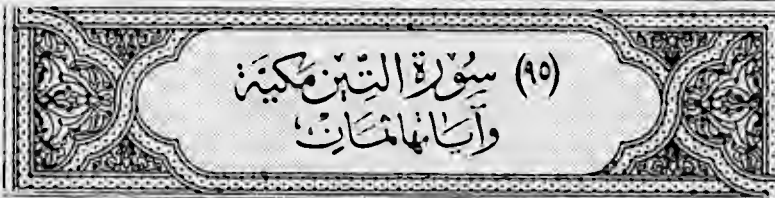 (٩٥) سُورَةُ التِّينِ مَكِيَّة
وَآيَانُهَا ثَمَانٍ